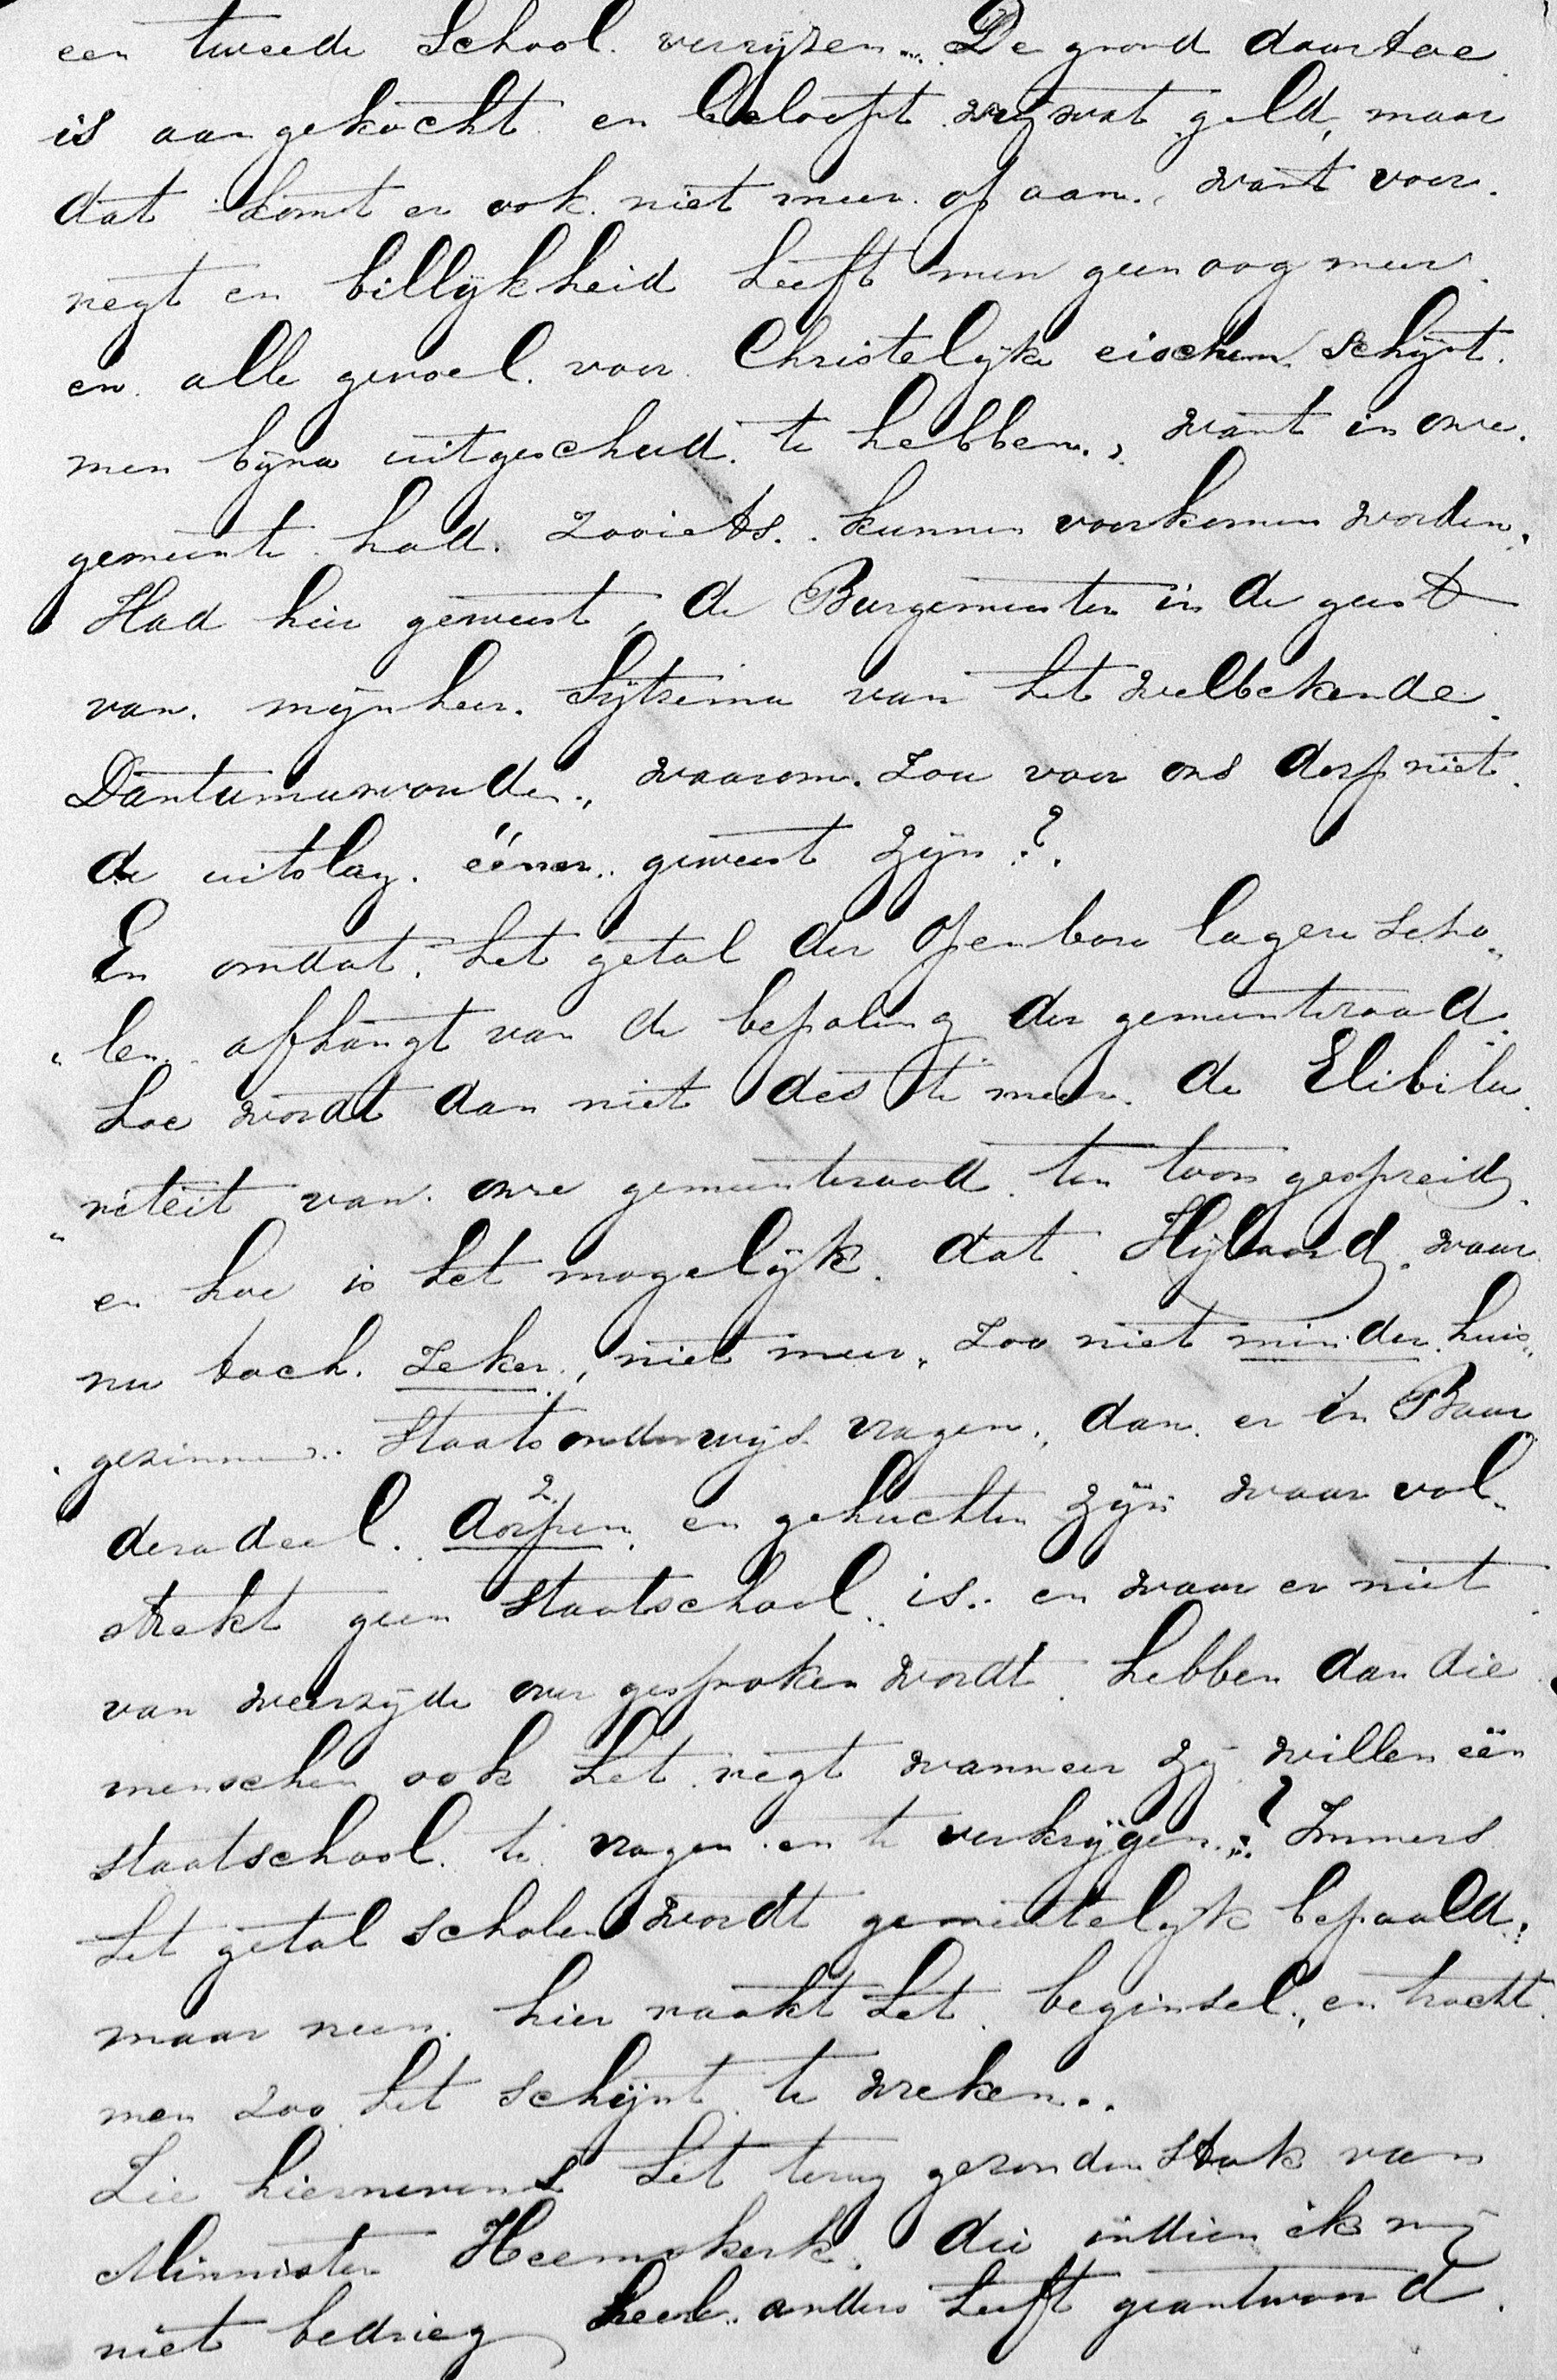 een tweede School verrijzen. De grond daartoe
is aangekocht en beloopt vrij wat geld, maar
dat komt er ook niet meer op aan, want voor
regt en billijkheid heeft men geen oog meer
en alle gevoel voor Christelijke eischen schijnt
men bijna uitgeschud te hebben, want in onze
gemeente had zooiets kunnen voorkomen worden.
Had hier geweest, de Burgemeester in de geest
van mijnheer Sijtzema van het welbekende
Dantumawoude, waarom zou voor ons dorp niet
de uitslag ééner geweest zijn?
En omdat het getal der Openbare lagere scho„
„len afhangt van de bepaling der gemeenteraad
hoe wordt dan niet des te meer de Elibila
„riteit van onze gemeenteraad ten toon gespreid,
en hoe is het mogelijk dat Hijlaard, waar
nu toch zeker, niet meer, zoo niet minder huis„
„gezinnen Staatsonderwijs vragen, dan er in Baar
deradeel 2 dorpen en gehuchten zijn waar vol„
strekt geen Staatschool is en waar er niet
van weerzijde over gesproken wordt hebben dan die
menschen ook het regt wanneer zij willen één
staatschool te vragen en te verkrijgen? Immers
het getal scholen wordt gemeentelijk bepaald,
maar neen hier raakt het beginsel, en tracht
men zoo het schijnt te wreken.
Zie hiernevens het terug gezonden stuk van
Minnister Heemskerk die indien ik mij
niet bedrieg heel anders heeft geantwoord